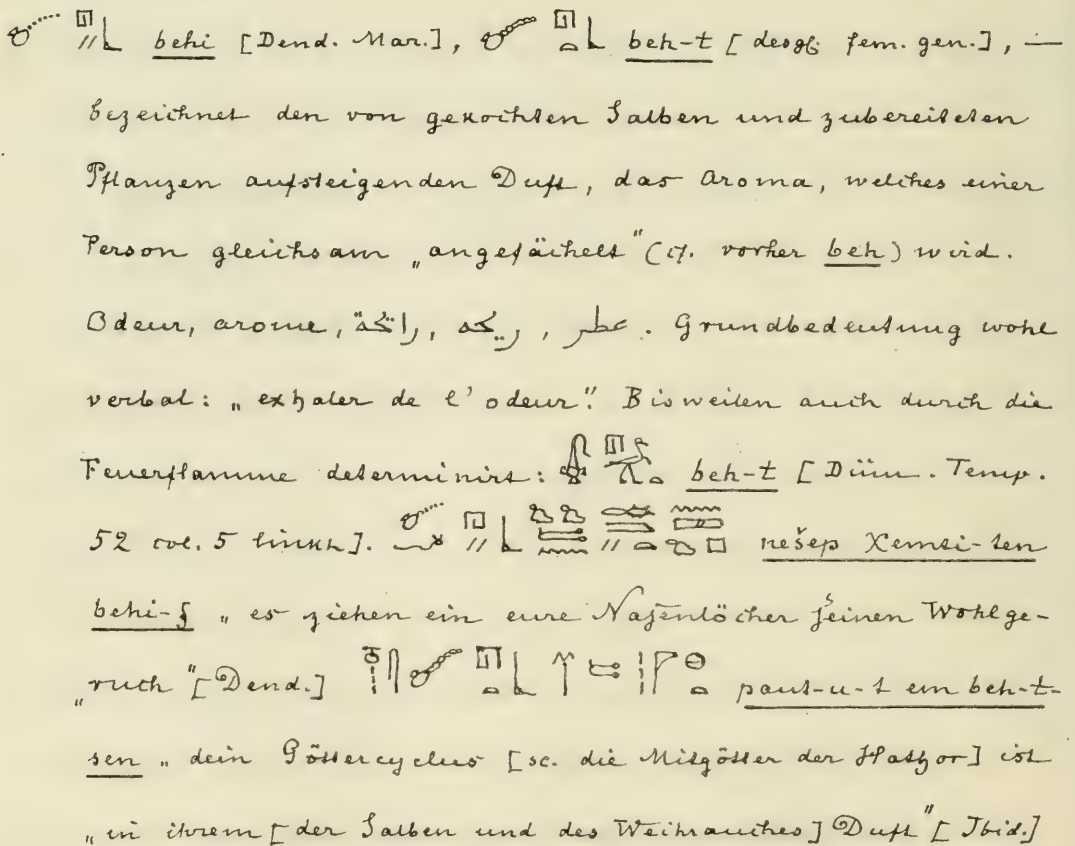 behi [Dend. Mar.], beh-t [desgl. fem. gen.], —
bezeichnet den von gekochten Salben und zubereiteten
Pflanzen aufsteigenden Duft, das Aroma, welches einer
Person gleichsam „angefächelt“ (cf. vorher beh) wird.
Odeur, arome, رائحة, ريحه, عطر. Grundbedeutung wohl
verbal: „exhaler de l'odeur“. Bisweilen auch durch die
Feuerflamme determinirt: beh-t [Düm. Temp.
52 col. 5 links]. nešep Xemti-ten
behi-f „es ziehen ein eure Nasenlöcher seinen Wohlge-
„ruch“ [Dend.] paut-u-t em beh-t-
sen „dein Göttercyclus [sc. die Mitgötter der Hathor] ist
„in ihrem [der Salben und des Weihrauches] Duft“ [Ibid.]